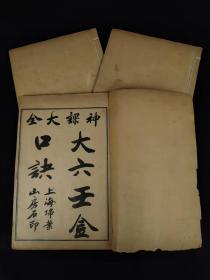 神課大全
大六壬金
口訣
上海掃葉
山房石印